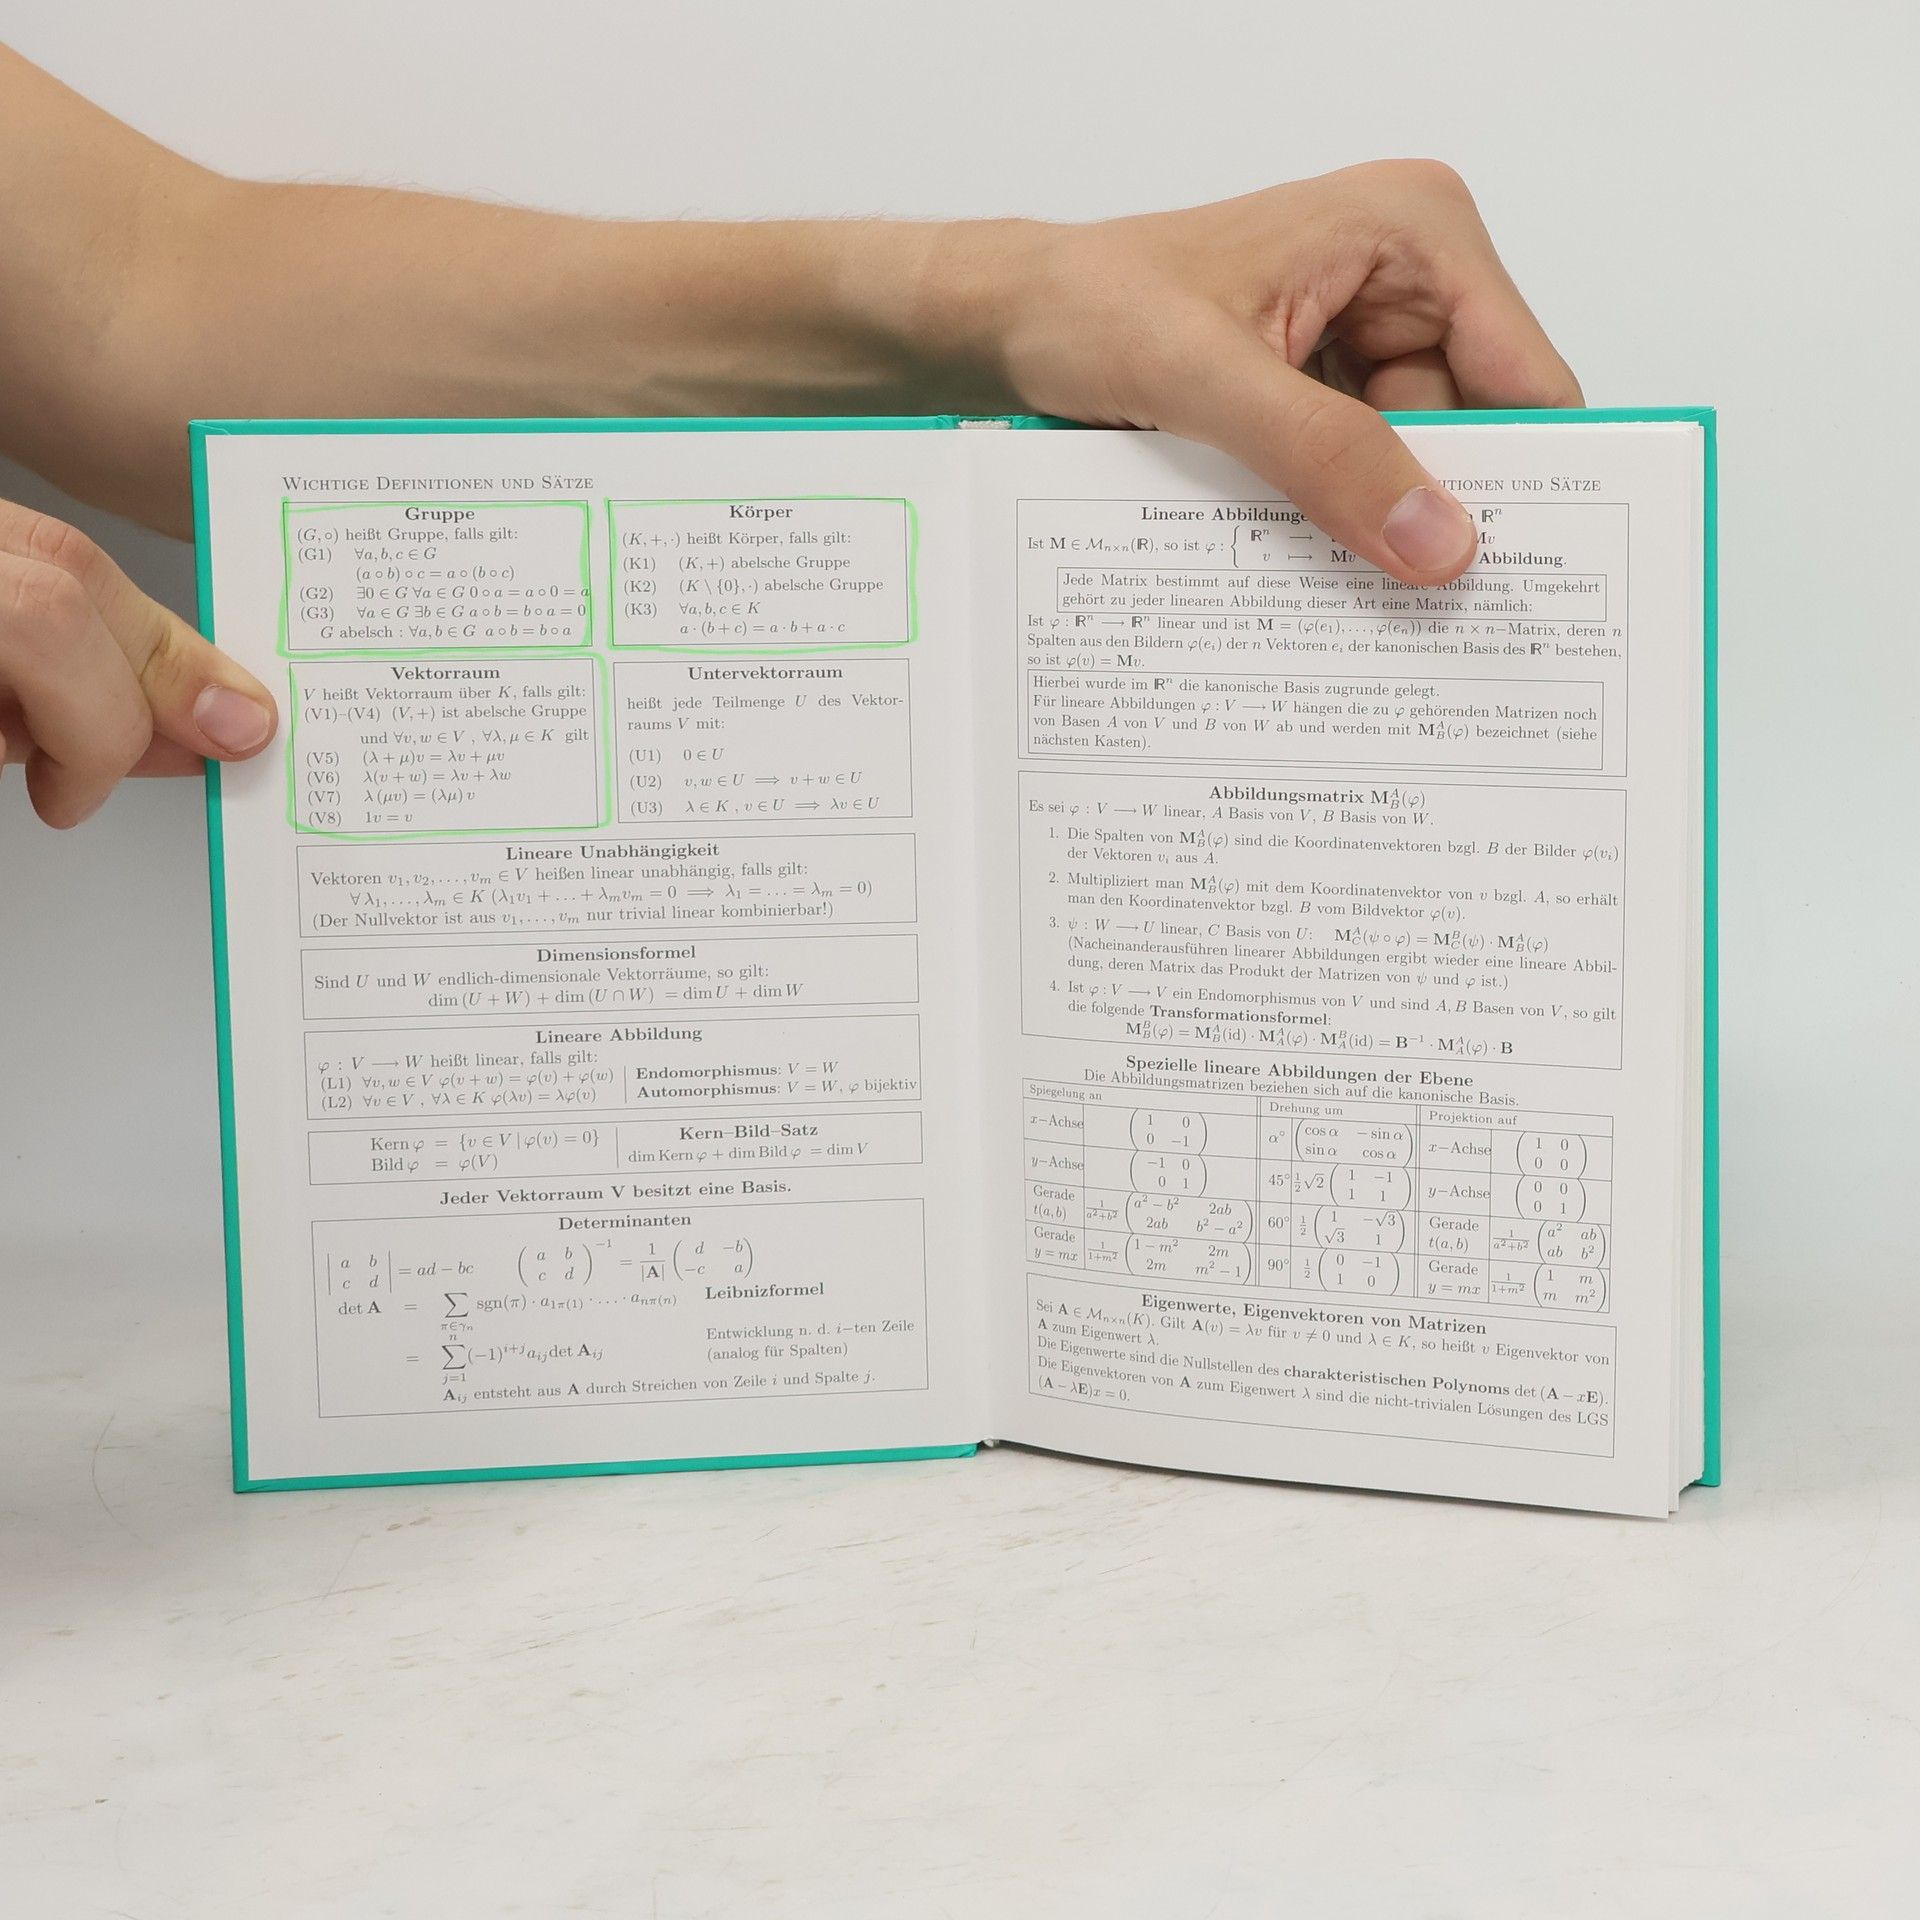 WICHTIGE DEFINITIONEN UND SÄTZE
Gruppe
(G, ∘) heißt Gruppe, falls gilt:
(G1) ∀a, b, c ∈ G
(a ∘ b) ∘ c = a ∘ (b ∘ c)
(G2) ∃0 ∈ G ∀a ∈ G 0 ∘ a = a ∘ 0 = a
(G3) ∀a ∈ G ∃b ∈ G a ∘ b = b ∘ a = 0
G abelsch : ∀a, b ∈ G a ∘ b = b ∘ a
Körper
(K, +, ·) heißt Körper, falls gilt:
(K1) (K, +) abelsche Gruppe
(K2) (K \ {0}, ·) abelsche Gruppe
(K3) ∀a, b, c ∈ K
a · (b + c) = a · b + a · c
Vektorraum
V heißt Vektorraum über K, falls gilt:
(V1)–(V4) (V, +) ist abelsche Gruppe
und ∀v, w ∈ V , ∀λ, μ ∈ K gilt
(V5) (λ + μ)v = λv + μv
(V6) λ(v + w) = λv + λw
(V7) λ (μv) = (λμ) v
(V8) 1v = v
Untervektorraum
heißt jede Teilmenge U des Vektor-
raums V mit:
(U1) 0 ∈ U
(U2) v, w ∈ U ⟹ v + w ∈ U
(U3) λ ∈ K , v ∈ U ⟹ λv ∈ U
Lineare Unabhängigkeit
Vektoren v₁, v₂, . . . , vₘ ∈ V heißen linear unabhängig, falls gilt:
∀ λ₁, . . . , λₘ ∈ K (λ₁v₁ + . . . + λₘvₘ = 0 ⟹ λ₁ = . . . = λₘ = 0)
(Der Nullvektor ist aus v₁, . . . , vₘ nur trivial linear kombinierbar!)
Dimensionsformel
Sind U und W endlich-dimensionale Vektorräume, so gilt:
dim (U + W) + dim (U ∩ W) = dim U + dim W
Lineare Abbildung
φ : V ⟶ W heißt linear, falls gilt:
(L1) ∀v, w ∈ V φ(v + w) = φ(v) + φ(w)
(L2) ∀v ∈ V , ∀λ ∈ K φ(λv) = λφ(v)
Endomorphismus: V = W
Automorphismus: V = W, φ bijektiv
Kern φ = {v ∈ V | φ(v) = 0}
Bild φ = φ(V)
Kern–Bild–Satz
dim Kern φ + dim Bild φ = dim V
Jeder Vektorraum V besitzt eine Basis.
Determinanten
| a b | = ad − bc ( a b )⁻¹ = 1/|A| ( d −b )
| c d | ( c d ) ( −c a )
det A = ∑_{π∈γₙ} sgn(π) · a_{1π(1)} · . . . · a_{nπ(n)} Leibnizformel
= ∑_{j=1}^{n} (−1)^{i+j} a_{ij} det A_{ij} Entwicklung n. d. i−ten Zeile
(analog für Spalten)
A_{ij} entsteht aus A durch Streichen von Zeile i und Spalte j.
ITIONEN UND SÄTZE
Lineare Abbildunge n ℝⁿ
Ist M ∈ M_{n×n}(ℝ), so ist φ : { ℝⁿ ⟶
v ⟼ Mv Mv
Abbildung.
Jede Matrix bestimmt auf diese Weise eine lineare Abbildung. Umgekehrt
gehört zu jeder linearen Abbildung dieser Art eine Matrix, nämlich:
Ist φ : ℝⁿ ⟶ ℝⁿ linear und ist M = (φ(e₁), . . . , φ(eₙ)) die n × n−Matrix, deren n
Spalten aus den Bildern φ(eᵢ) der n Vektoren eᵢ der kanonischen Basis des ℝⁿ bestehen,
so ist φ(v) = Mv.
Hierbei wurde im ℝⁿ die kanonische Basis zugrunde gelegt.
Für lineare Abbildungen φ : V ⟶ W hängen die zu φ gehörenden Matrizen noch
von Basen A von V und B von W ab und werden mit M_B^A(φ) bezeichnet (siehe
nächsten Kasten).
Abbildungsmatrix M_B^A(φ)
Es sei φ : V ⟶ W linear, A Basis von V, B Basis von W.
1. Die Spalten von M_B^A(φ) sind die Koordinatenvektoren bzgl. B der Bilder φ(vᵢ)
der Vektoren vᵢ aus A.
2. Multipliziert man M_B^A(φ) mit dem Koordinatenvektor von v bzgl. A, so erhält
man den Koordinatenvektor bzgl. B vom Bildvektor φ(v).
3. ψ : W ⟶ U linear, C Basis von U: M_C^A(ψ ∘ φ) = M_C^B(ψ) · M_B^A(φ)
(Nacheinanderausführen linearer Abbildungen ergibt wieder eine lineare Abbil-
dung, deren Matrix das Produkt der Matrizen von ψ und φ ist.)
4. Ist φ : V ⟶ V ein Endomorphismus von V und sind A, B Basen von V, so gilt
die folgende Transformationsformel:
M_B^B(φ) = M_B^A(id) · M_A^A(φ) · M_A^B(id) = B⁻¹ · M_A^A(φ) · B
Spezielle lineare Abbildungen der Ebene
Die Abbildungsmatrizen beziehen sich auf die kanonische Basis.
Spiegelung an Drehung um Projektion auf
x−Achse ( 1 0 ) α° ( cos α − sin α ) x−Achse ( 1 0 )
( 0 −1 ) ( sin α cos α ) ( 0 0 )
y−Achse ( −1 0 ) 45° ½√2 ( 1 −1 ) y−Achse ( 0 0 )
( 0 1 ) ( 1 1 ) ( 0 1 )
Gerade t(a, b) 1/(a²+b²) ( a² − b² 2ab ) 60° ½ ( 1 −√3 ) Gerade t(a, b) 1/(a²+b²) ( a² ab )
( 2ab b² − a² ) ( √3 1 ) ( ab b² )
Gerade y = mx 1/(1+m²) ( 1 − m² 2m ) 90° ½ ( 0 −1 ) Gerade y = mx 1/(1+m²) ( 1 m )
( 2m m² − 1 ) ( 1 0 ) ( m m² )
Eigenwerte, Eigenvektoren von Matrizen
Sei A ∈ M_{n×n}(K). Gilt A(v) = λv für v ≠ 0 und λ ∈ K, so heißt v Eigenvektor von
A zum Eigenwert λ.
Die Eigenwerte sind die Nullstellen des charakteristischen Polynoms det (A − xE).
Die Eigenvektoren von A zum Eigenwert λ sind die nicht-trivialen Lösungen des LGS
(A − λE)x = 0.